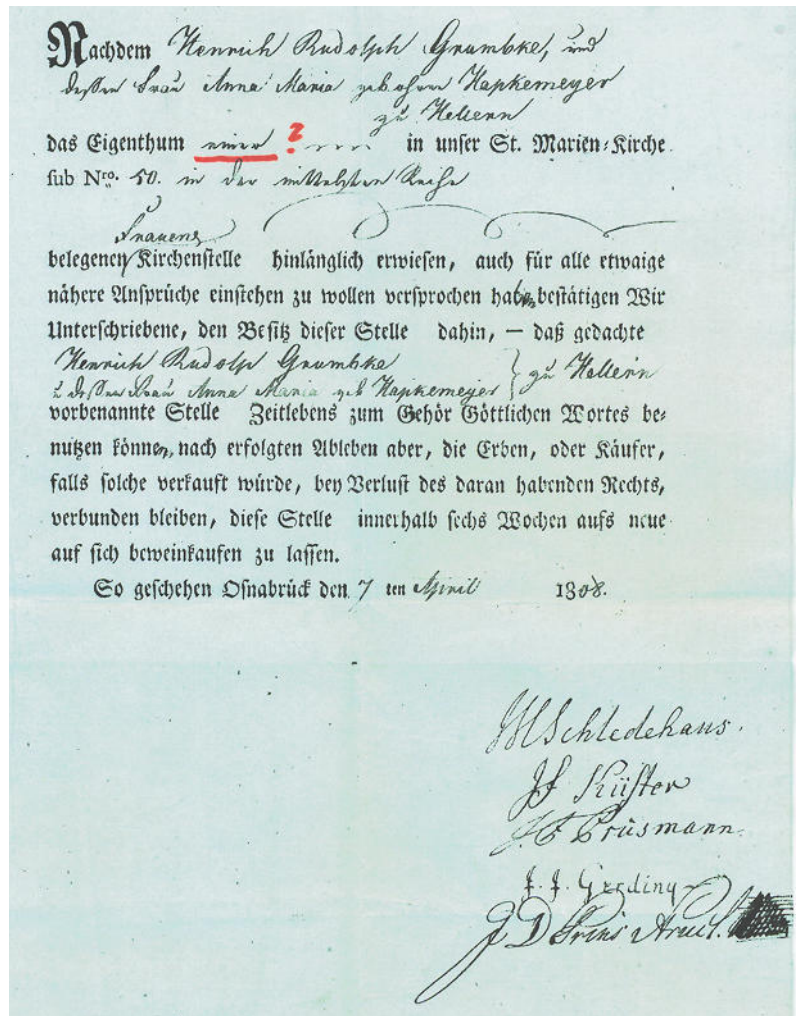 Nachdem Henrich Rudolph Grumbke, und
dessen Frau Anna Maria gebohrne Hapkemeyer
zu Hellern
das Eigenthum einer ? in unser St. Marien-Kirche
sub Nro. 50. in der mittelsten Reihe
Frauens
belegenen Kirchenstelle hinlänglich erwiesen, auch für alle etwaige
nähere Ansprüche einstehen zu wollen versprochen haben, bestätigen Wir
Unterschriebene, den Besitz dieser Stelle dahin, — daß gedachte
Henrich Rudolph Grumbke } zu Hellern
u dessen Frau Anna Maria geb Hapkemeyer
vorbenannte Stelle Zeitlebens zum Gehör Göttlichen Wortes be-
nutzen können, nach erfolgten Ableben aber, die Erben, oder Käufer,
falls solche verkauft würde, bey Verlust des daran habenden Rechts,
verbunden bleiben, diese Stelle innerhalb sechs Wochen aufs neue
auf sich beweinkaufen zu lassen.
So geschehen Osnabrück den 7 ten April 1808.
Schledehaus.
JF Küster
Prüsmann
F. F. Gerding
J D